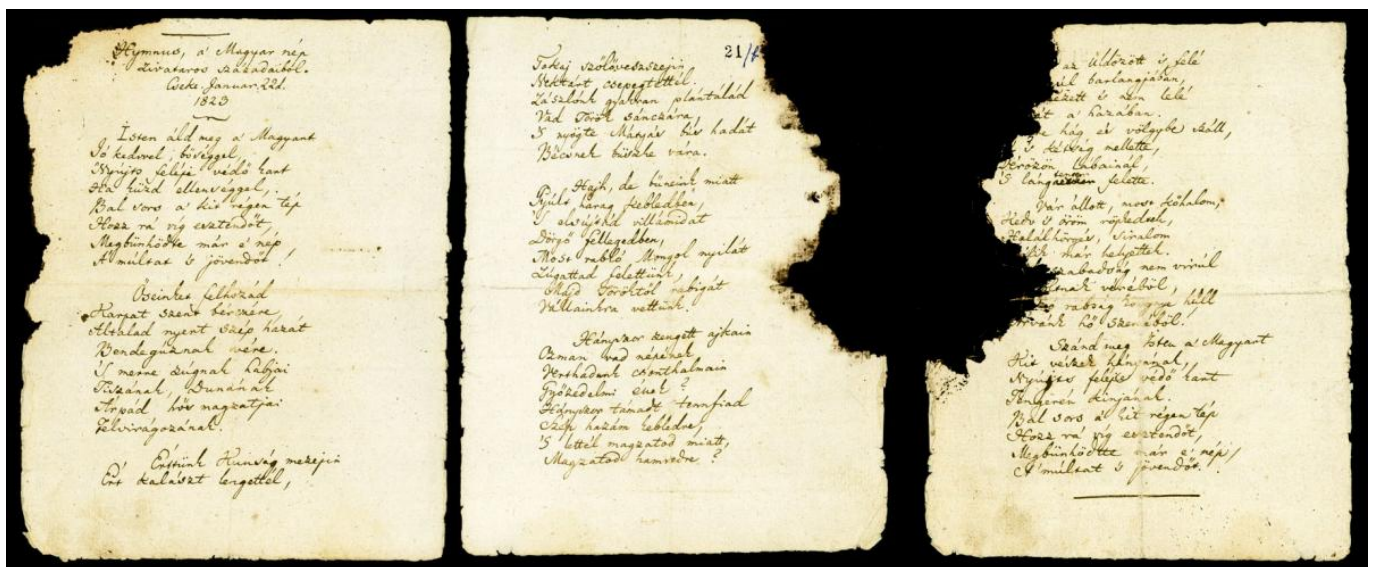 Hymnus, a' Magyar nép
zivataros századaiból.
Cseke. Januar. 22d.
1823
Isten áld meg a' Magyart
Jó kedvvel, bőséggel,
Nyújts feléje védő kart
Ha küzd ellenséggel,
Bal sors a' kit régen tép
Hozz rá víg esztendőt,
Megbünhödte már e' nép
A' múltat 's jövendőt!
Őseinket felhozád
Kárpát szent bérczére,
Általad nyert szép hazát
Bendegúznak vére.
'S merre zúgnak habjai
Tiszának, Dunának
Árpád hős magzatjai
Felvirágozának.
Értünk Kunság mezejin
Ért kalászt lengettél,
21/f
Tokaj szőlővesszejin
Nektárt csepegtettél.
Zászlónk gyakran plántálád
Vad Török sánczára,
'S nyögte Mátyás bús hadát
Bécsnek büszke vára.
Hajh, de bűneink miatt
Gyúlt harag kebledben,
'S elsújtád villámidat
Dörgő fellegedben,
Most rabló Mongol nyilát
Zúgattad felettünk,
Majd Töröktől rabigát
Vállainkra vettünk.
Hányszor zengett ajkain
Ozman vad népének
Vert hadunk csonthalmain
Győzedelmi ének?
Hányszor támadt tennfiad
Szép hazám kebledre,
'S lettél magzatod miatt,
Magzatod hamvedre?
az üldözött 's felé
barlangjában,
's nem lelé
a' hazában.
hág és völgybe száll,
's kétség mellette,
Vérözön lábainál,
'S láng felette.
Vár állott, most kőhalom,
Kedv 's öröm röpkedtek,
Halálhörgés, siralom
már helyettek.
szabadság nem virúl
véréből,
rabság könnye hull
hő szeméből.
Szánd meg Isten a' Magyart
Kit vészek hányának,
Nyújts feléje védő kart
Tengerén kínjának.
Bal sors a' kit régen tép
Hozz rá víg esztendőt,
Megbünhödte már e' nép
A' múltat 's jövendőt.